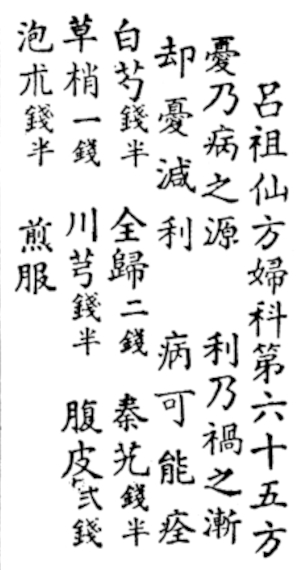 呂祖仙方婦科第六十五方
憂乃病之源　利乃禍之漸
却憂減利　病可能痊
白芍錢半　全歸二錢　秦艽錢半
草梢一錢　川芎錢半　腹皮弍錢
泡朮錢半　煎服